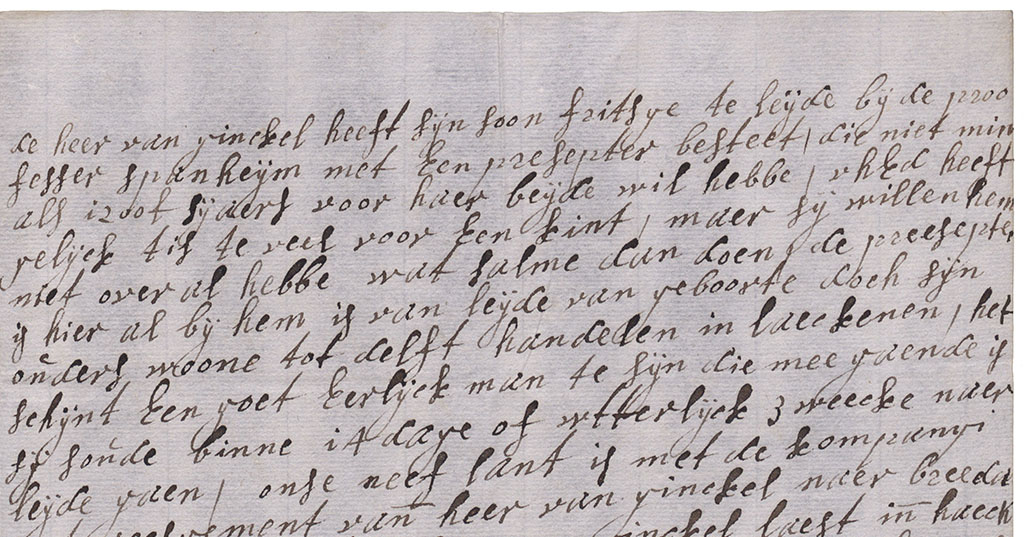 de heer van ginckel heeft sijn soon fritsye te leijde bij de proo
fesser spanheijm met Een presepter besteet, die niet min
als 1200f sjaers voor haer beijde wil hebbe, vhEd heeft
gelijck tis te veel voor Een kint, maer sij willen hem
niet over al hebbe wat salme dan doen, de preesepter
is hier al bij hem is van leijde van geboorte doch sijn
ouders woone tot delft handelen in laeckenen, het
schijnt Een goet Eerlijck man te sijn die mee gaende is
sij soude binne 14 dage of wtterlijck 3 weecke naer
leijde gaen, onse neef lant is met de kompangi
van heer van ginckel naer breeda
laest in haeck